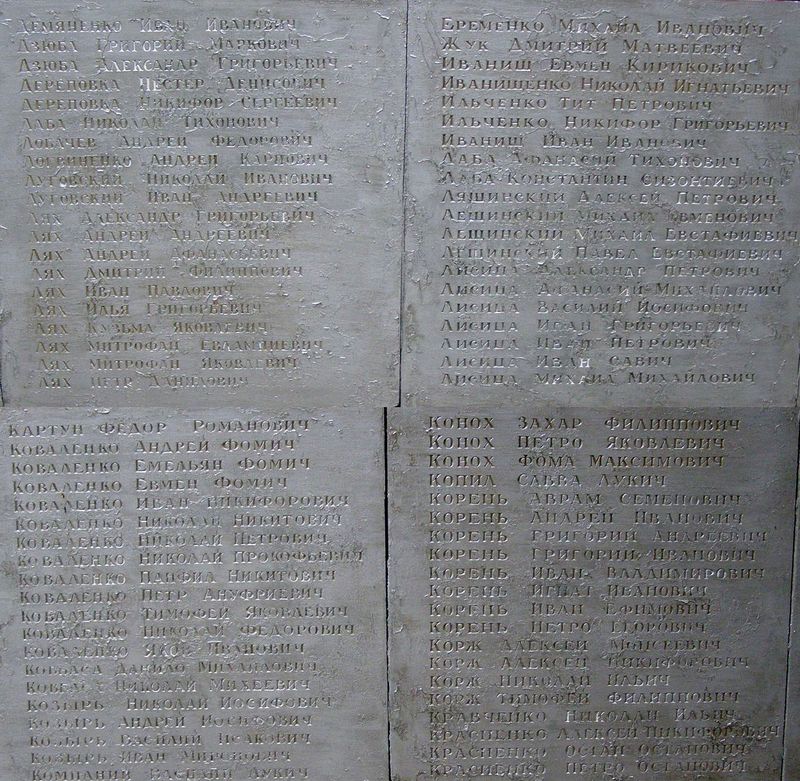 Демяненко Иван Иванович
Дзюба Григорий Маркович
Дзюба Александр Григорьевич
Дереповка Нестер Денисович
Дереповка Никифор Сергеевич
Лаба Николай Тихонович
Лобачев Андрей Федорович
Логвиненко Андрей Карпович
Луговский Николай Иванович
Луговский Иван Андреевич
Лях Александр Григорьевич
Лях Андрей Андреевич
Лях Андрей Афанасьевич
Лях Дмитрий Филиппович
Лях Иван Павлович
Лях Илья Григорьевич
Лях Кузьма Яковлевич
Лях Митрофан Евлампиевич
Лях Митрофан Яковлевич
Лях Петр Данилович
Еременко Михаил Иванович
Жук Дмитрий Матвеевич
Иванищ Евмен Кирикович
Иванищенко Николай Игнатьевич
Ильченко Тит Петрович
Ильченко Никифор Григорьевич
Иванищ Иван Иванович
Лаба Афанасий Тихонович
Лаба Константин Сизонтиевич
Ляшинский Алексей Петрович
Лещинский Михаил Евменович
Лещинский Михаил Евстафиевич
Лещинский Павел Евстафиевич
Лисица Александр Петрович
Лисица Афанасий Михайлович
Лисица Василий Иосифович
Лисица Иван Григорьевич
Лисица Иван Петрович
Лисица Иван Савич
Лисица Михаил Михайлович
Картун Федор Романович
Коваленко Андрей Фомич
Коваленко Емельян Фомич
Коваленко Евмен Фомич
Коваленко Иван Никифорович
Коваленко Николай Никитович
Коваленко Николай Петрович
Коваленко Николай Прокофьевич
Коваленко Панфил Никитович
Коваленко Петр Ануфриевич
Коваленко Тимофей Яковлевич
Коваленко Николай Федорович
Коваленко Яков Иванович
Ковбаса Данило Михайлович
Николай Михеевич
Козырь Николай Иосифович
Козырь Андрей Иосифович
Козырь Василий Исакович
Козырь Иван Миронович
Компаниц Василий Лукич
Конох Захар Филиппович
Конох Петро Яковлевич
Конох Фома Максимович
Копил Савва Лукич
Корень Аврам Семенович
Корень Андрей Иванович
Корень Григорий Андреевич
Корень Григорий Иванович
Корень Иван Владимирович
Корень Игнат Иванович
Корень Иван Ефимович
Корень Петро Егорович
Корж Алексей Моисеевич
Корж Алексей Никифорович
Корж Николай Ильич
Корж Тимофей Филиппович
Кравченко Николай Ильич
Красненко Алексей Никифорович
Красненко Остап Остапович
Красненко Петро Остапович